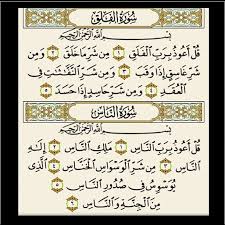 سُورَةُ الْفَلَقِ
بِسْمِ اللَّهِ الرَّحْمَٰنِ الرَّحِيمِ
قُلْ أَعُوذُ بِرَبِّ الْفَلَقِ ١ مِن شَرِّ مَا خَلَقَ ٢ وَمِن
شَرِّ غَاسِقٍ إِذَا وَقَبَ ٣ وَمِن شَرِّ النَّفَّاثَاتِ فِي
الْعُقَدِ ٤ وَمِن شَرِّ حَاسِدٍ إِذَا حَسَدَ ٥
سُورَةُ النَّاسِ
بِسْمِ اللَّهِ الرَّحْمَٰنِ الرَّحِيمِ
قُلْ أَعُوذُ بِرَبِّ النَّاسِ ١ مَلِكِ النَّاسِ ٢ إِلَٰهِ
النَّاسِ ٣ مِن شَرِّ الْوَسْوَاسِ الْخَنَّاسِ ٤ الَّذِي
يُوَسْوِسُ فِي صُدُورِ النَّاسِ ٥
مِنَ الْجِنَّةِ وَالنَّاسِ ٦